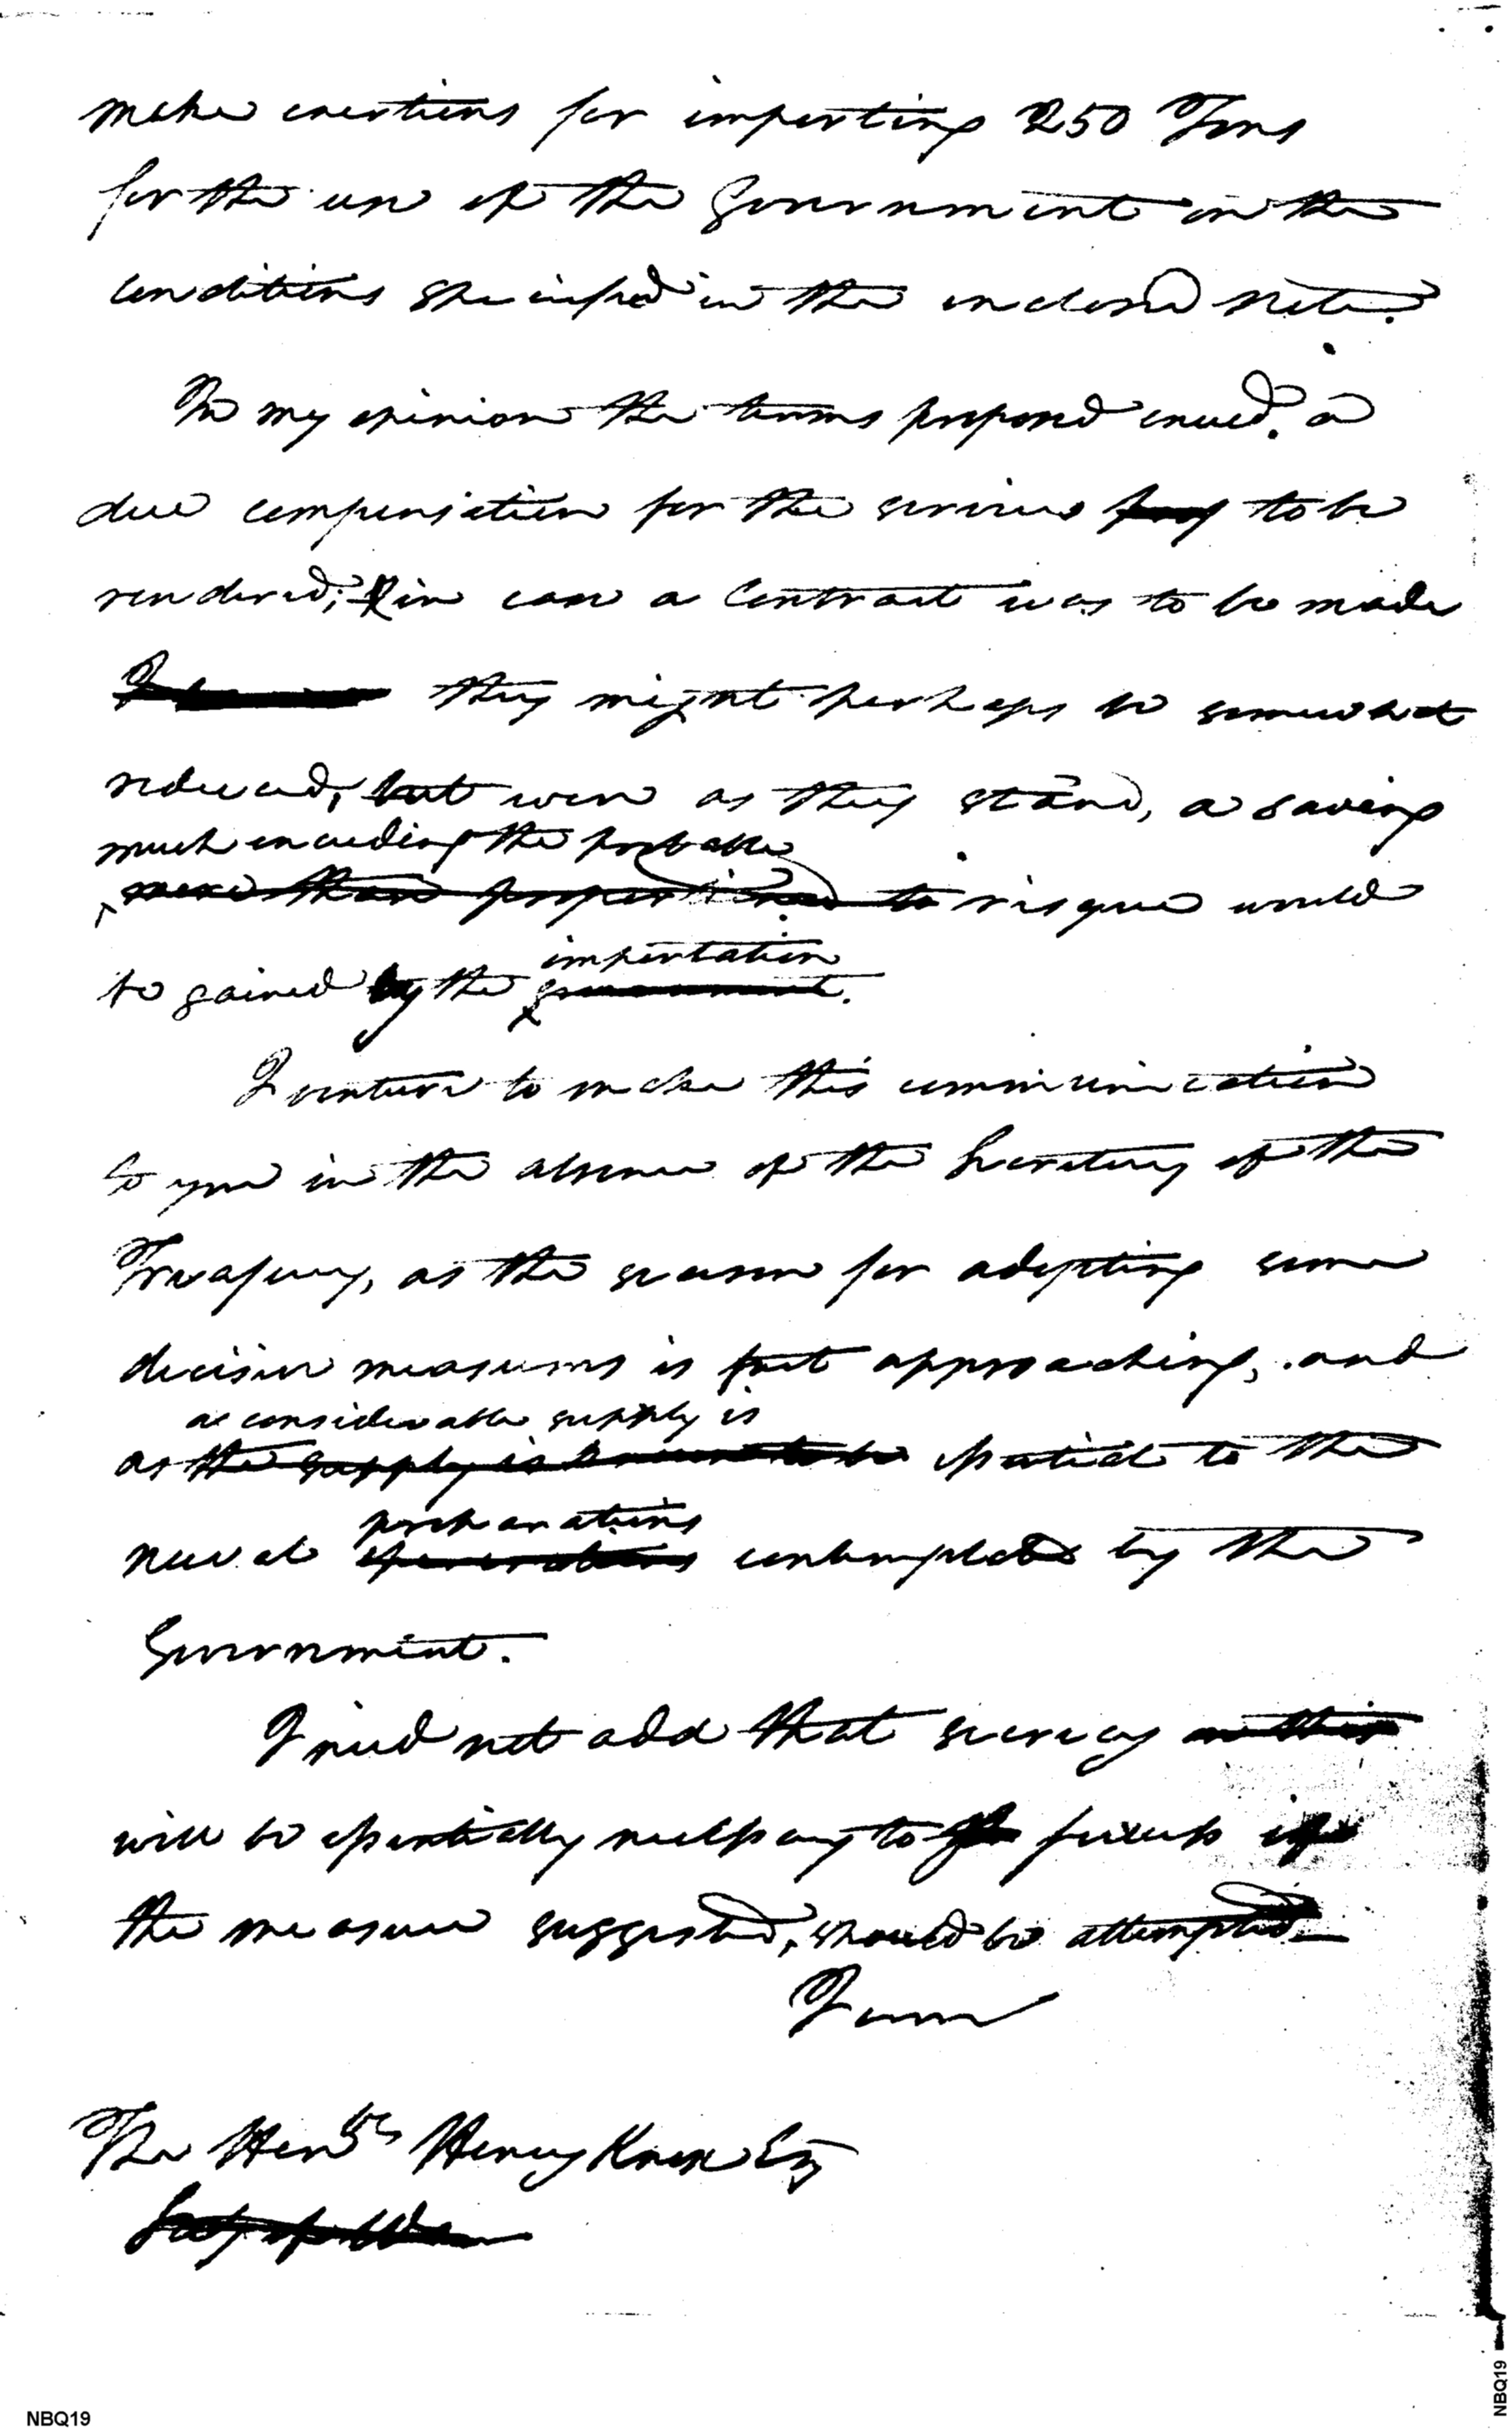 make exertions for importing 250 Tons
for the use of the Government on the
conditions specified in the inclosed Note.
In my opinion the terms proposed exceed a
due compensation for the services to be
rendered; & in case a Contract was to be made
they might perhaps be somewhat
reduced, but even as they stand, a saving
much exceeding the probable
more than proportioned to risque would
be gained by the importation
government.
I venture to make this communication
to you in the absence of the Secretary of the
Treasury, as the season for adopting some
decisive measures is fast approaching, and
a considerable supply is
as the supply is to be essential to the
naval preparations
operations contemplated by the
Government.
I need not add that secrecy on this
will be essentially necessary to success if
the measure suggested, should be attempted.
I am
The Honble Henry Knox Esq
Secy of War
NBQ19
NBQ19